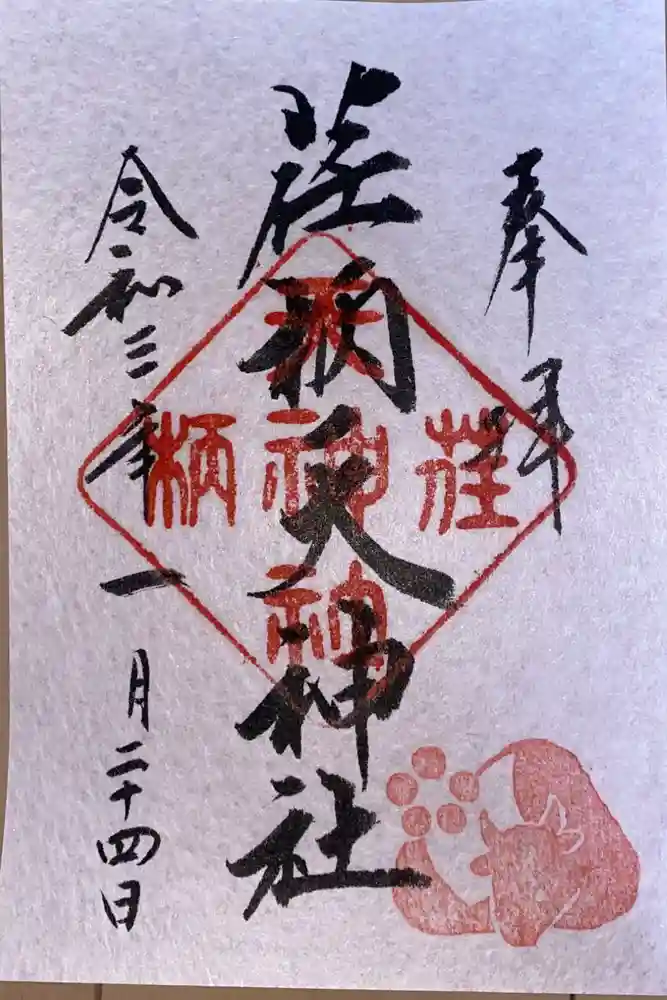 奉拝
荏柄天神社
令和三年一月二十四日
荏柄
天神
社